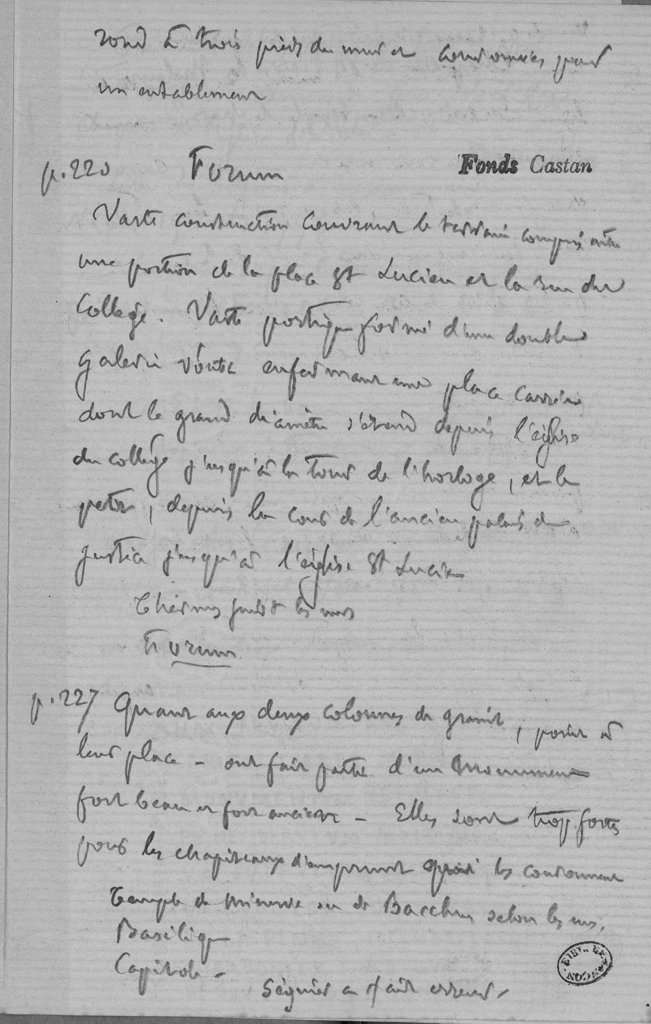 rond à trois pieds du mur et couronnées par
un entablement
p. 220 Forum
Fonds Castan
Vaste construction couvrant le terrain compris entre
une portion de la place St Lucien et la rue du
Collège. Vaste portique formé d'une double
galerie voûtée enfermant une place carrée
dont le grand diamètre s'étend depuis l'église
du collège jusqu'à la tour de l'horloge, et le
petit, depuis la cour de l'ancien palais de
justice jusqu'à l'église St Lucien
Thermes les uns
Forum
p. 227 Quant aux deux colonnes de granit, point à
leur place – ont fait partie d'un monument
fort beau et fort ancien – Elles sont trop fortes
pour les chapiteaux d'emprunt qui les couronnent
Temple de Minerve ou de Bacchus selon les uns,
Basilique
Capitole –
Séguier a fait erreur.